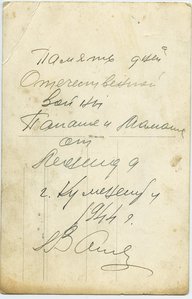 Память дней
Отечественной
войны
Папаше и Мамаше
от
Леонида
г.
1944 г.